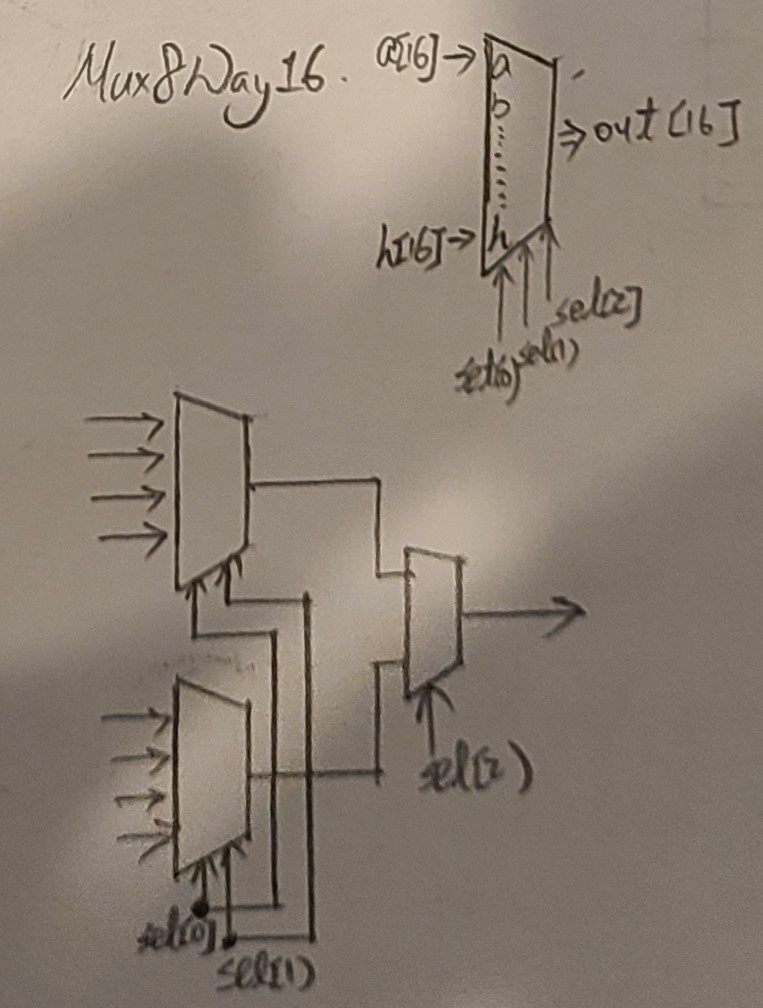 Mux8Way16.
a[16]
a
b
out[16]
h[16]
h
sel[2]
sel(1)
sel(0)
sel(2)
sel[0]
sel(1)